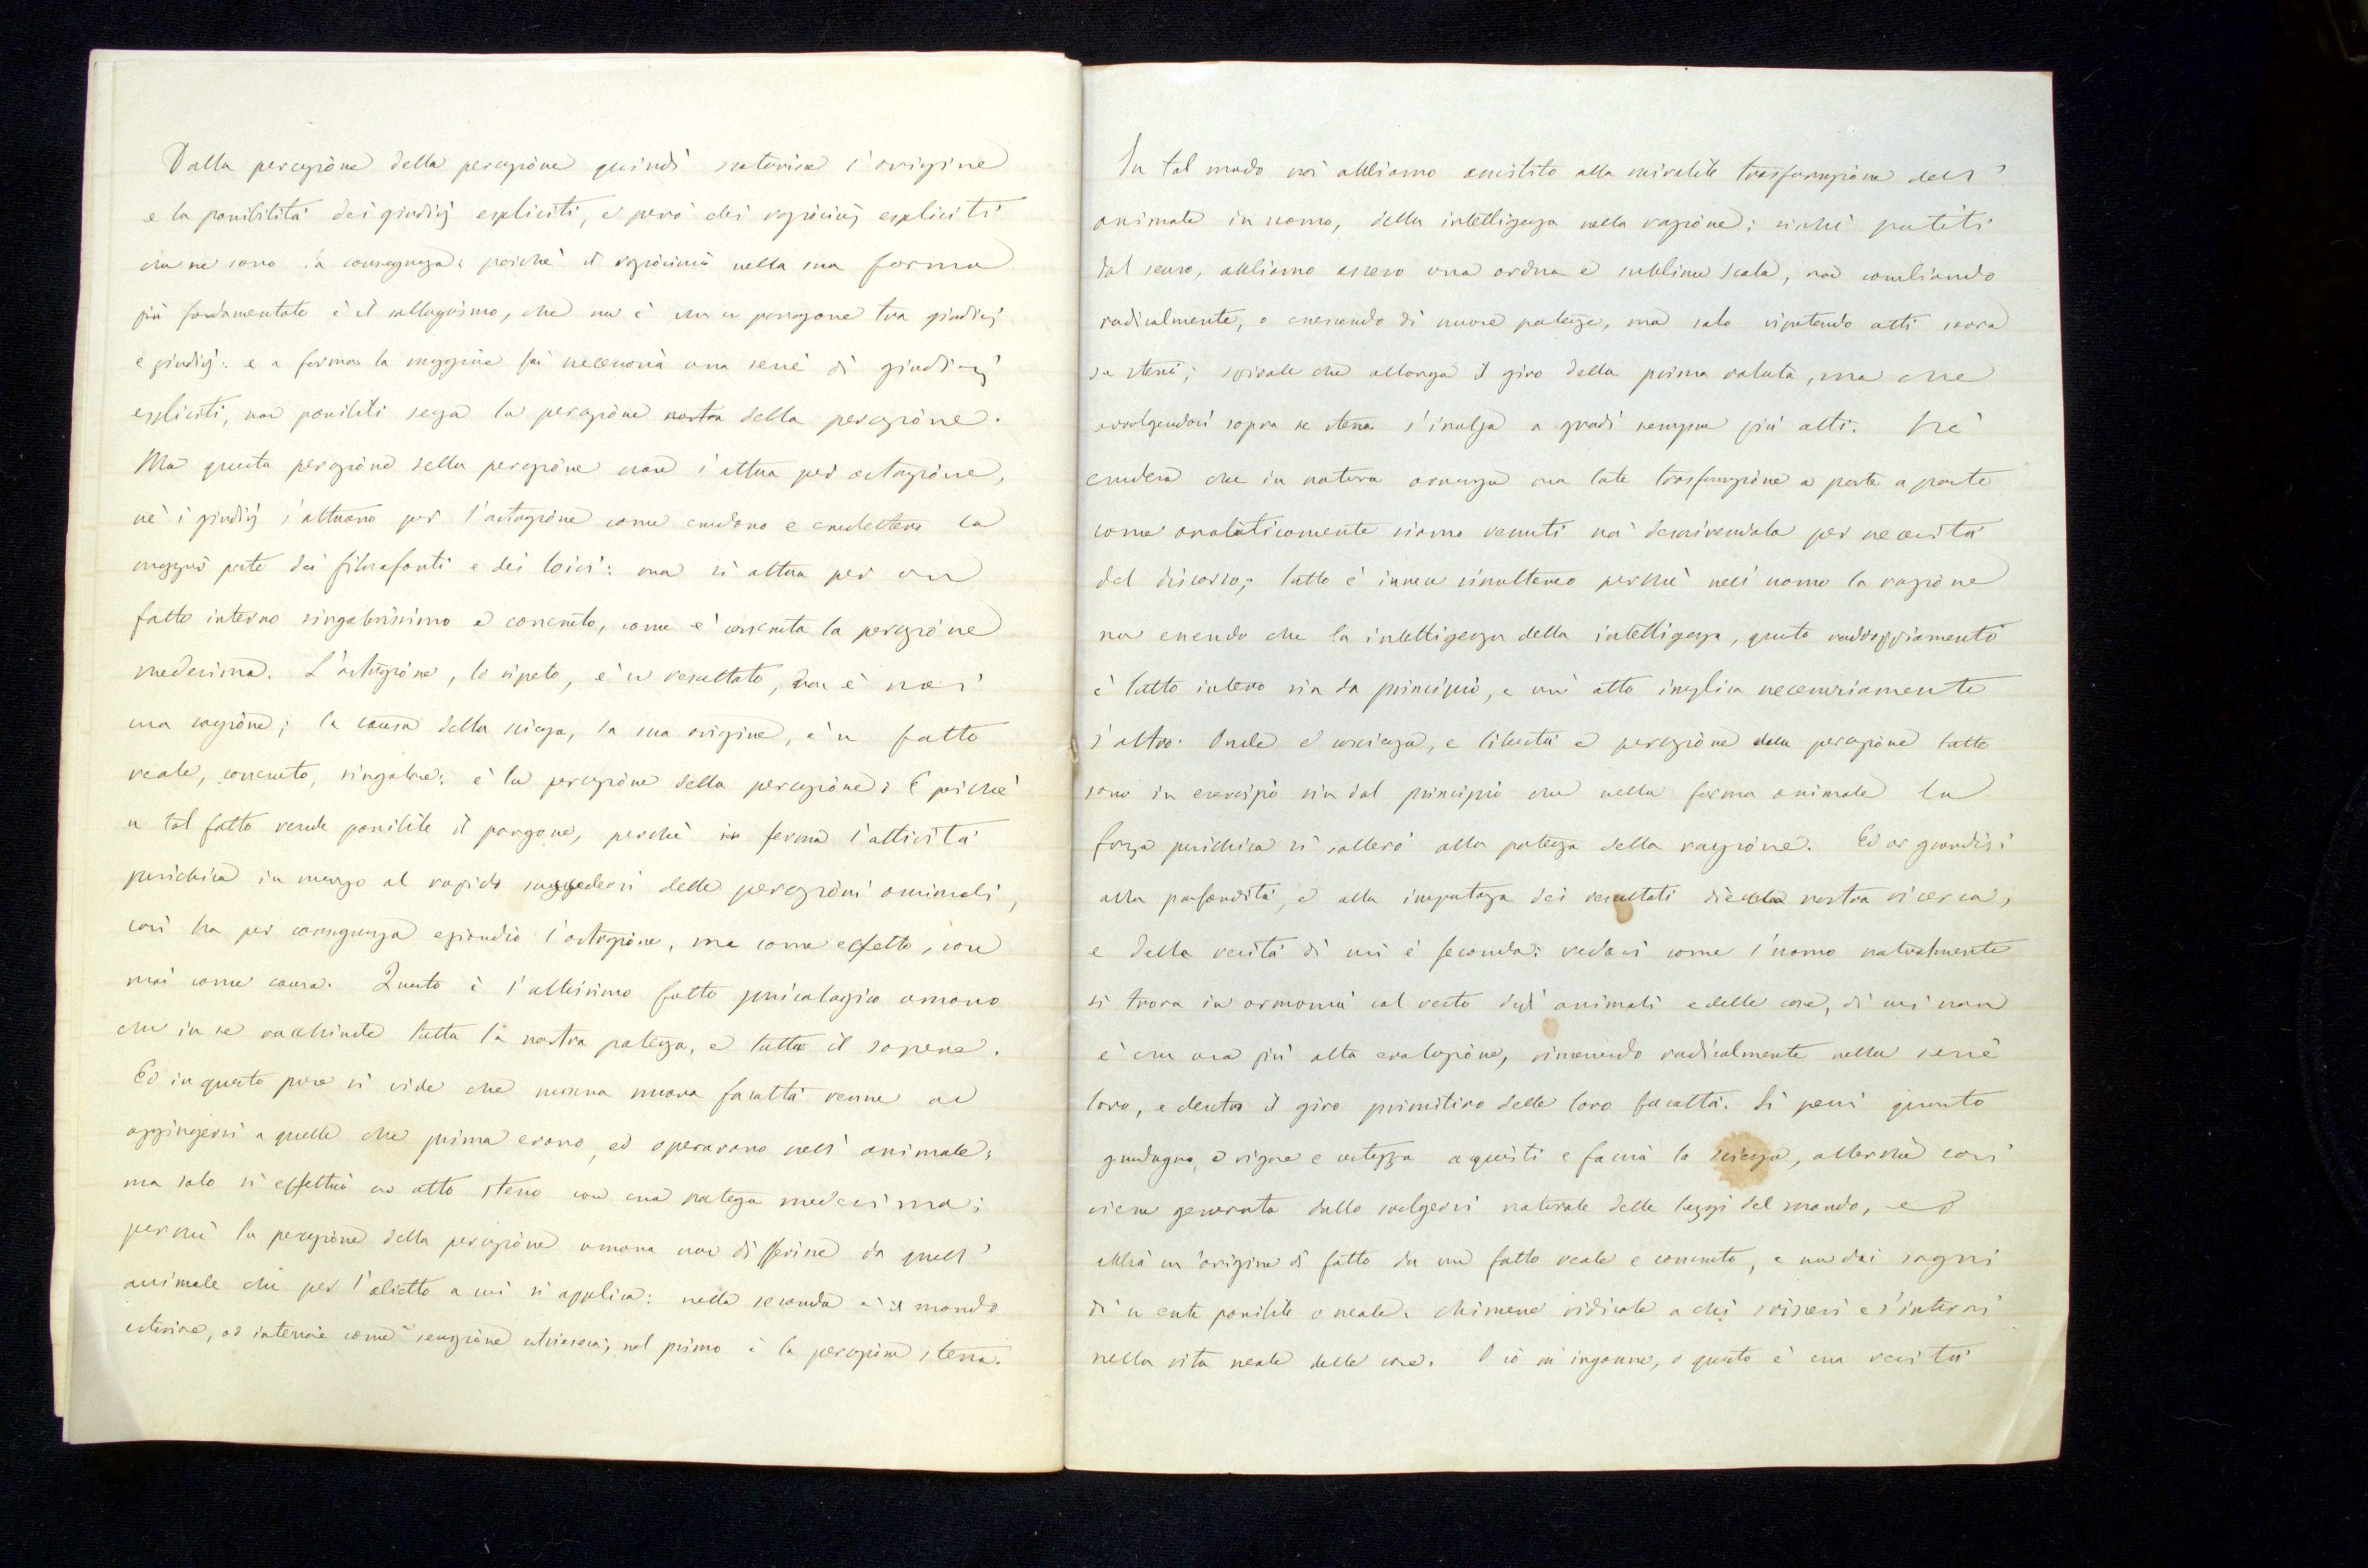 Dalla percezione della percezione quindi scaturisce l'origine
e la possibilità dei giudizj espliciti, e però dei raziocinj espliciti
che ne sono la conseguenza: poichè il raziocinio nella sua forma
più fondamentale è il sillogismo, che non è che un paragone tra giudizj
e giudizj: e a formar la maggiore fia necessaria una serie di giudizj
espliciti, non possibili senza la percezione nostra della percezione.
Ma questa percezione della percezione non s'attua per astrazione,
nè i giudizj s'attuano per l'astrazione come credono e credettero la
maggior parte dei filosofanti e dei loici: ma si attua per un
fatto interno singolarissimo e concreto, come è concreta la percezione
medesima. L'astrazione, lo ripeto, è un resultato, non è mai
una cagione; la causa della scienza, la sua origine, è un fatto
reale, concreto, singolare: è la percezione della percezione: E poichè
un tal fatto rende possibile il paragone, perchè in ferma l'attività
psichica in mezzo al rapido succedersi delle percezioni animali,
così ha per conseguenza eziandio l'astrazione, ma come effetto, non
mai come causa. Questo è l'altissimo fatto psicologico umano
che in se racchiude tutta la nostra potenza, e tutto il sapere.
Ed in questo pure si vide che nessuna nuova facoltà venne ad
aggiugersi a quelle che prima erano, ed operavano nell'animale;
ma solo si effettuò un atto stesso con una potenza medesima;
perchè la percezione della percezione umana non differisce da quell'
animale che per l'obietto a cui si applica: nella seconda è il mondo
esteriore, od interiore come sensazione estrinseca; nel primo è la percezione stessa.
In tal modo noi abbiamo assistito alla mirabile trasformazione dell'
animale in uomo, della intelligenza nella ragione; sichè partiti
dal senso, abbiamo asceso una ardua e sublime scala, non cambiando
radicalmente, o crescendo di nuove potenze, ma solo ripetendo atti sovra
se stessi; spirale che allarga il giro della prima voluta, ma che
avvolgendosi sopra se stessa s'inalza a gradi sempre più alti. Nè
crederà che in natura avvenga una tale trasformazione a parte a parte
come analiticamente siamo venuti noi descrivendola per necessità
del discorso; tutto è invece simultaneo perchè nell'uomo la ragione
non essendo che la intelligenza della intelligenza, questo raddoppiamento
è tutto intero sin da principio, e un atto implica necessariamente
l'altro. Onde e coscienza, e libertà e percezione della percezione tutte
sono in esercizio sin dal principio che nella forma animale la
forza psichica si sollevò alla potenza della ragione. Ed or guardisi
alla profondità, e alla importanza dei resultati della nostra ricerca,
e della verità di cui è feconda: vedasi come l'uomo naturalmente
si trova in armonia col resto degli animali e delle cose, di cui non
è che una più alta evoluzione, rimanendo radicalmente nella serie
loro, e dentro il giro primitivo delle loro facoltà. Si pensi quanto
guadagno, e vigore e certezza acquisti e faccia la scienza, allorchè così
viene generata dallo svolgersi naturale delle leggi del mondo, ed
abbia un'origine di fatto da un fatto reale e concreto, e non dai sogni
di un ente possibile o reale. Chimere ridicole a chi scisersi e s'interni
nella vita reale delle cose. O io m'inganno, o questo è una verità